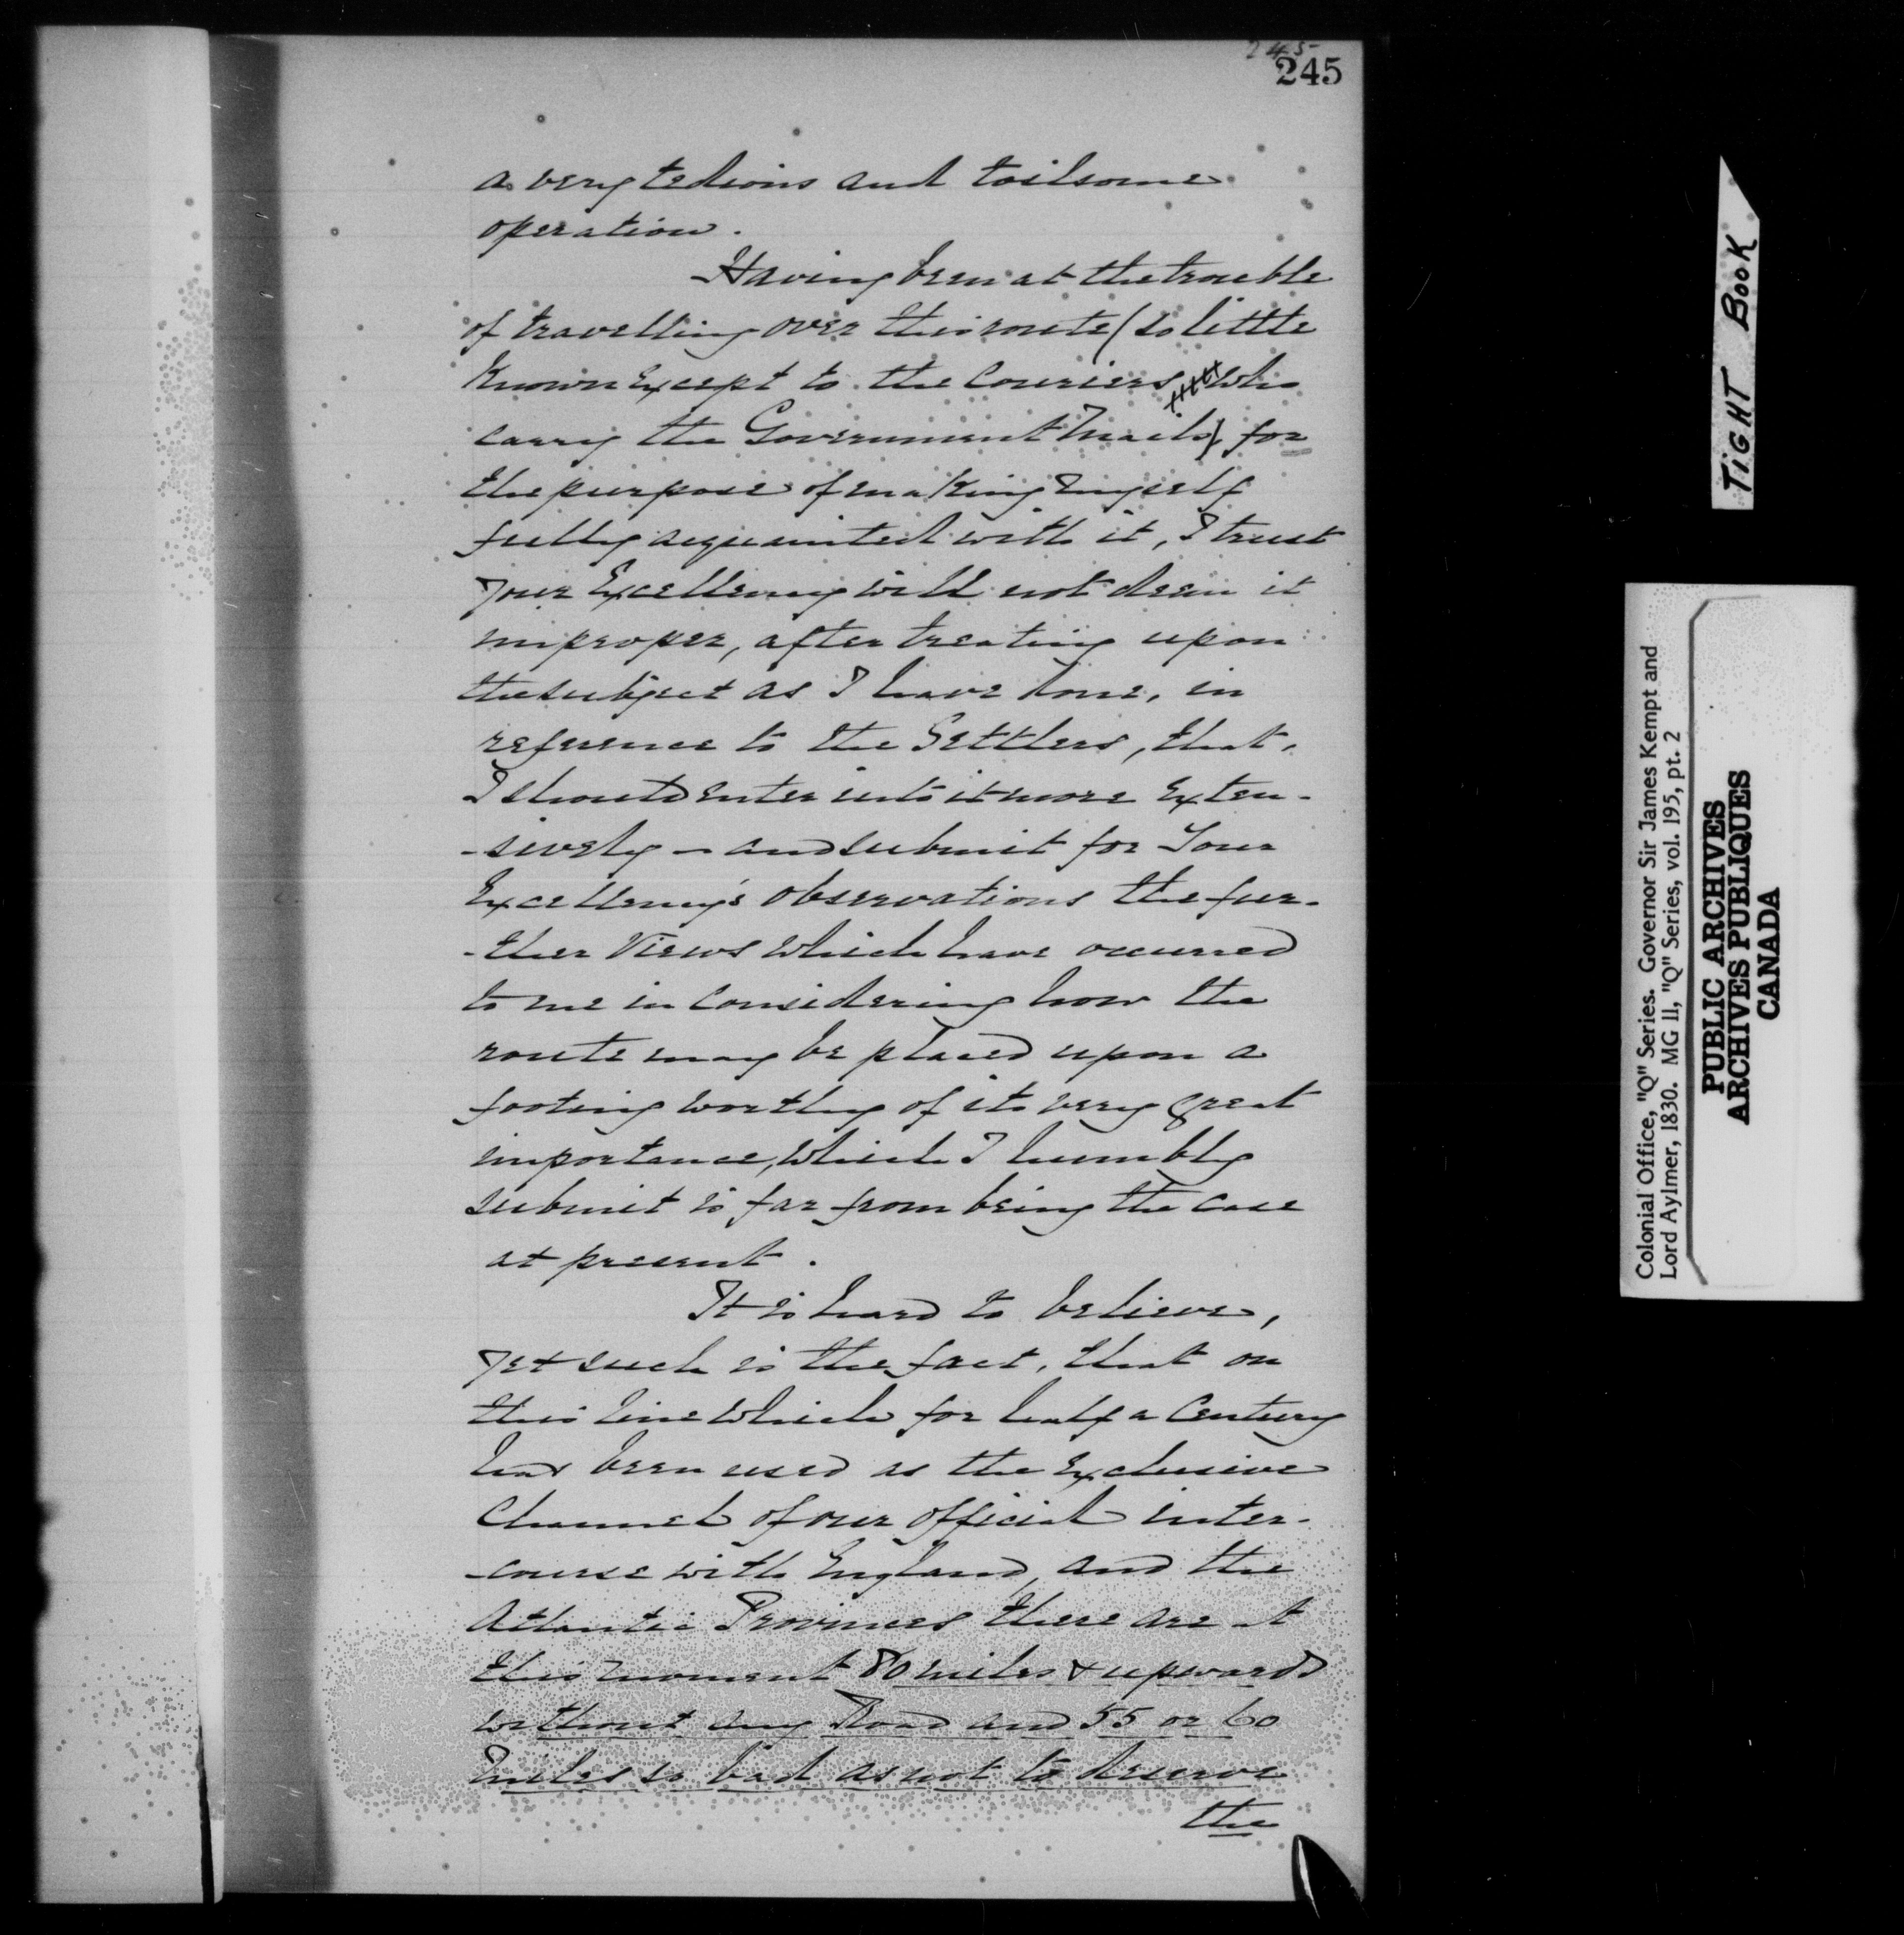 245
245
a very tedious and toilsome
operation.
Having been at the trouble
of travelling over this route (so little
Known Except to the Couriers who
carry the Government Mails) for
the purpose of making myself
fully acquainted with it, I trust
Your Excellency will not deem it
improper, after treating upon
the subject as I have done, in
reference to the Settlers, that,
I should enter into it more Exten-
-sively - and submit for Your
Excellency's observations the fur-
-ther Views which have occurred
to me in Considering how the
route may be placed upon a
footing worthy of its very great
importance, which I humbly
submit is far from being the case
at present.
It is hard to believe,
yet such is the fact, that on
this line which for half a Century
has been used as the Exclusive
Channel of our official inter-
-course with England, and the
Atlantic Provinces there are at
this moment 80 miles & upwards
without any Road and 55 or 60
Miles so bad as not to deserve
the
TIGHT BOOK
Colonial Office, "Q" Series. Governor Sir James Kempt and
Lord Aylmer, 1830. MG 11, "Q" Series, vol. 195, pt. 2
PUBLIC ARCHIVES
ARCHIVES PUBLIQUES
CANADA